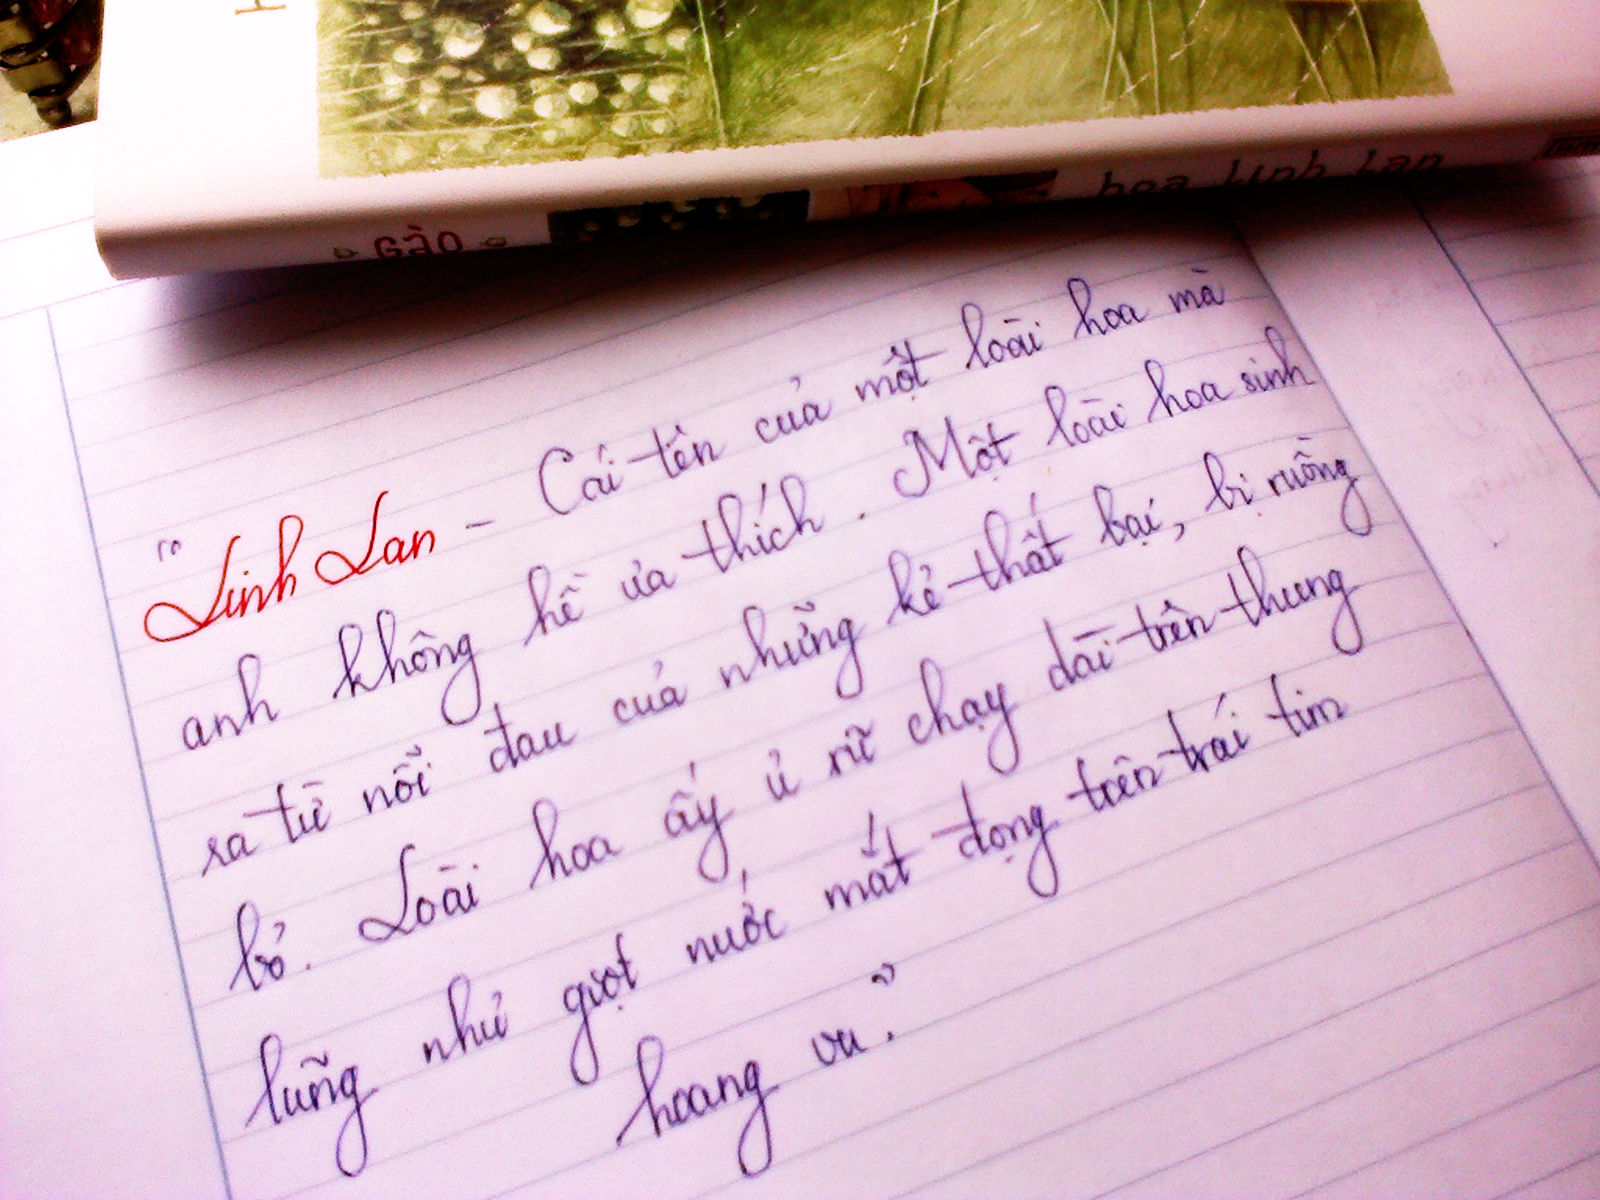 Gào hoa linh lan
"Linh Lan - Cái tên của một loài hoa mà
anh không hề ưa thích. Một loài hoa sinh
ra từ nỗi đau của những kẻ thất bại, bị ruồng
bỏ. Loài hoa ấy ủ rũ chạy dài trên thung
lũng như giọt nước mắt đọng trên trái tim
hoang vu."